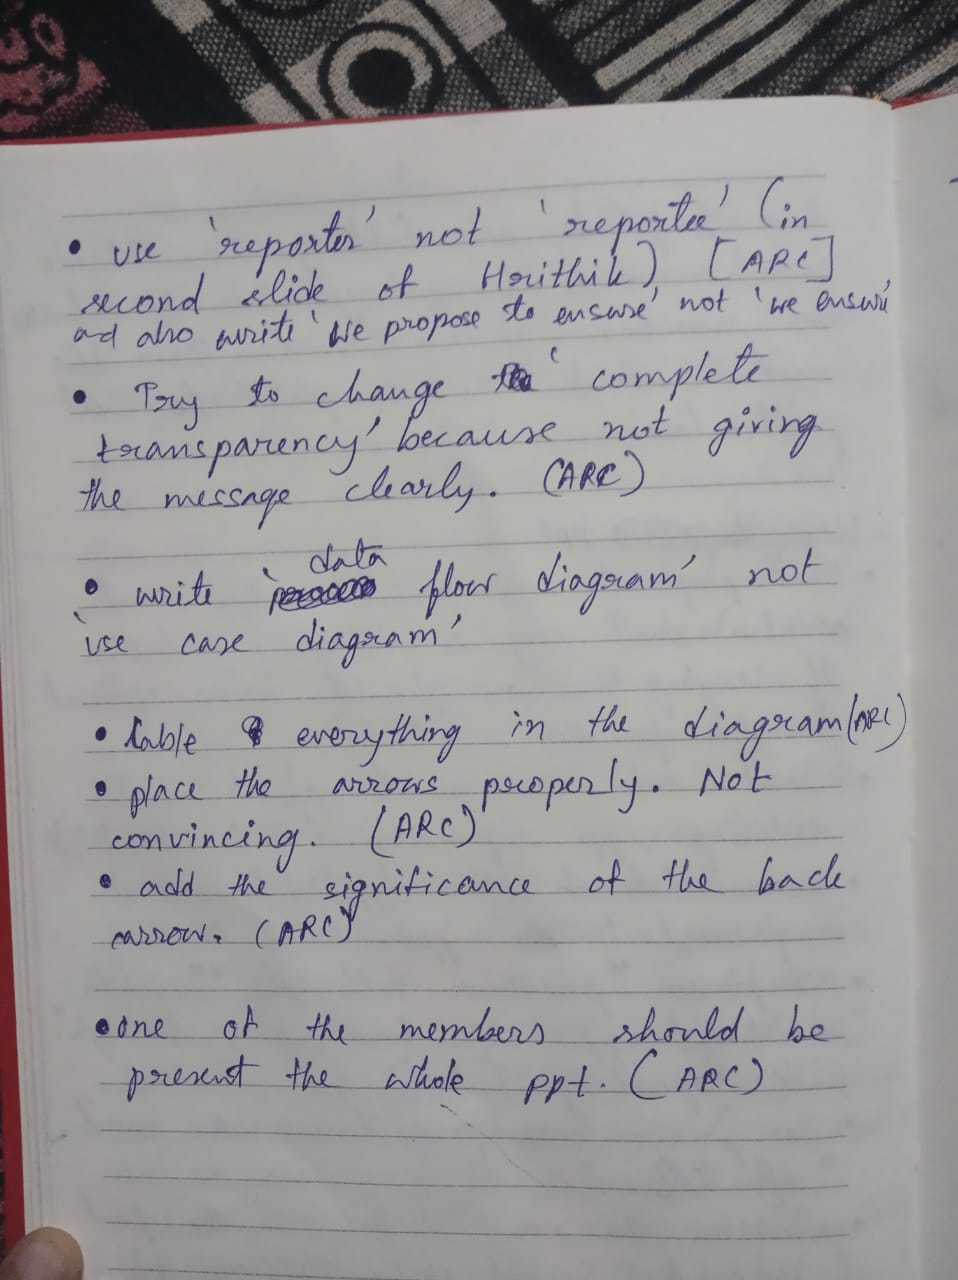 • use 'reporter' not 'reportee' (in
second slide of Hrithik) [ARC]
ad also write 'We propose to ensure' not 'we ensure'
• Try to change 'complete
transparency' because not giving
the message clearly. (ARC)
data
• write ' flow diagram' not
'use case diagram'
• lable everything in the diagram (ARC)
• place the arrows properly. Not
convincing. (ARC)
• add the significance of the back
arrow. (ARC)
• one of the members should be
present the whole ppt. (ARC)